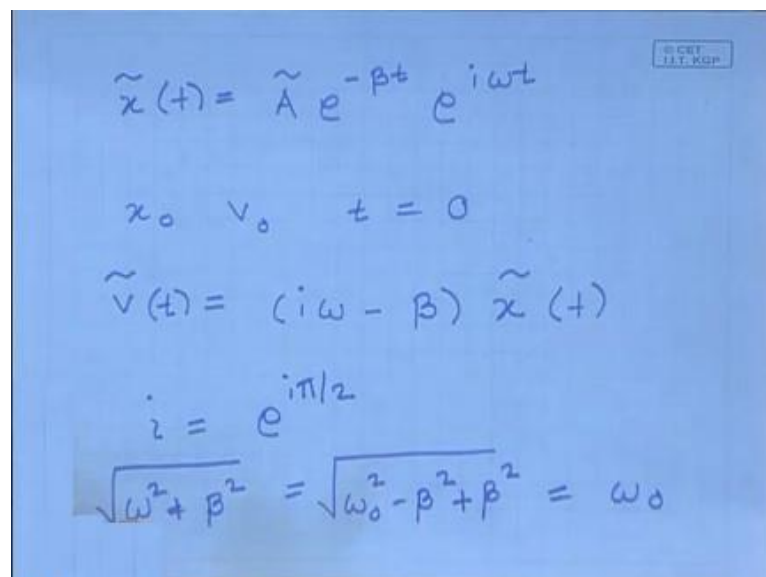 © CET
I.I.T. KGP
x̃(t) = Ã e^{-βt} e^{iωt}
x₀ v₀ t = 0
ṽ(t) = (iω - β) x̃(t)
i = e^{iπ/2}
√(ω² + β²) = √(ω₀² - β² + β²) = ω₀